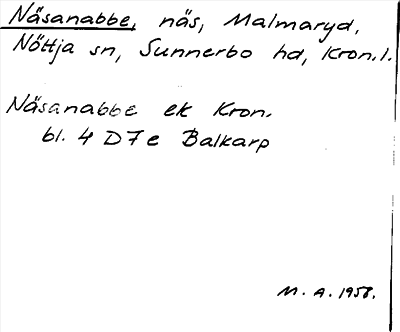 Näsanabbe, näs, Malmaryd,
Nöttja sn, Sunnerbo hd, Kron.l.
Näsanabbe ek Kron.
bl. 4 D 7 e Balkarp
M. A. 1958.